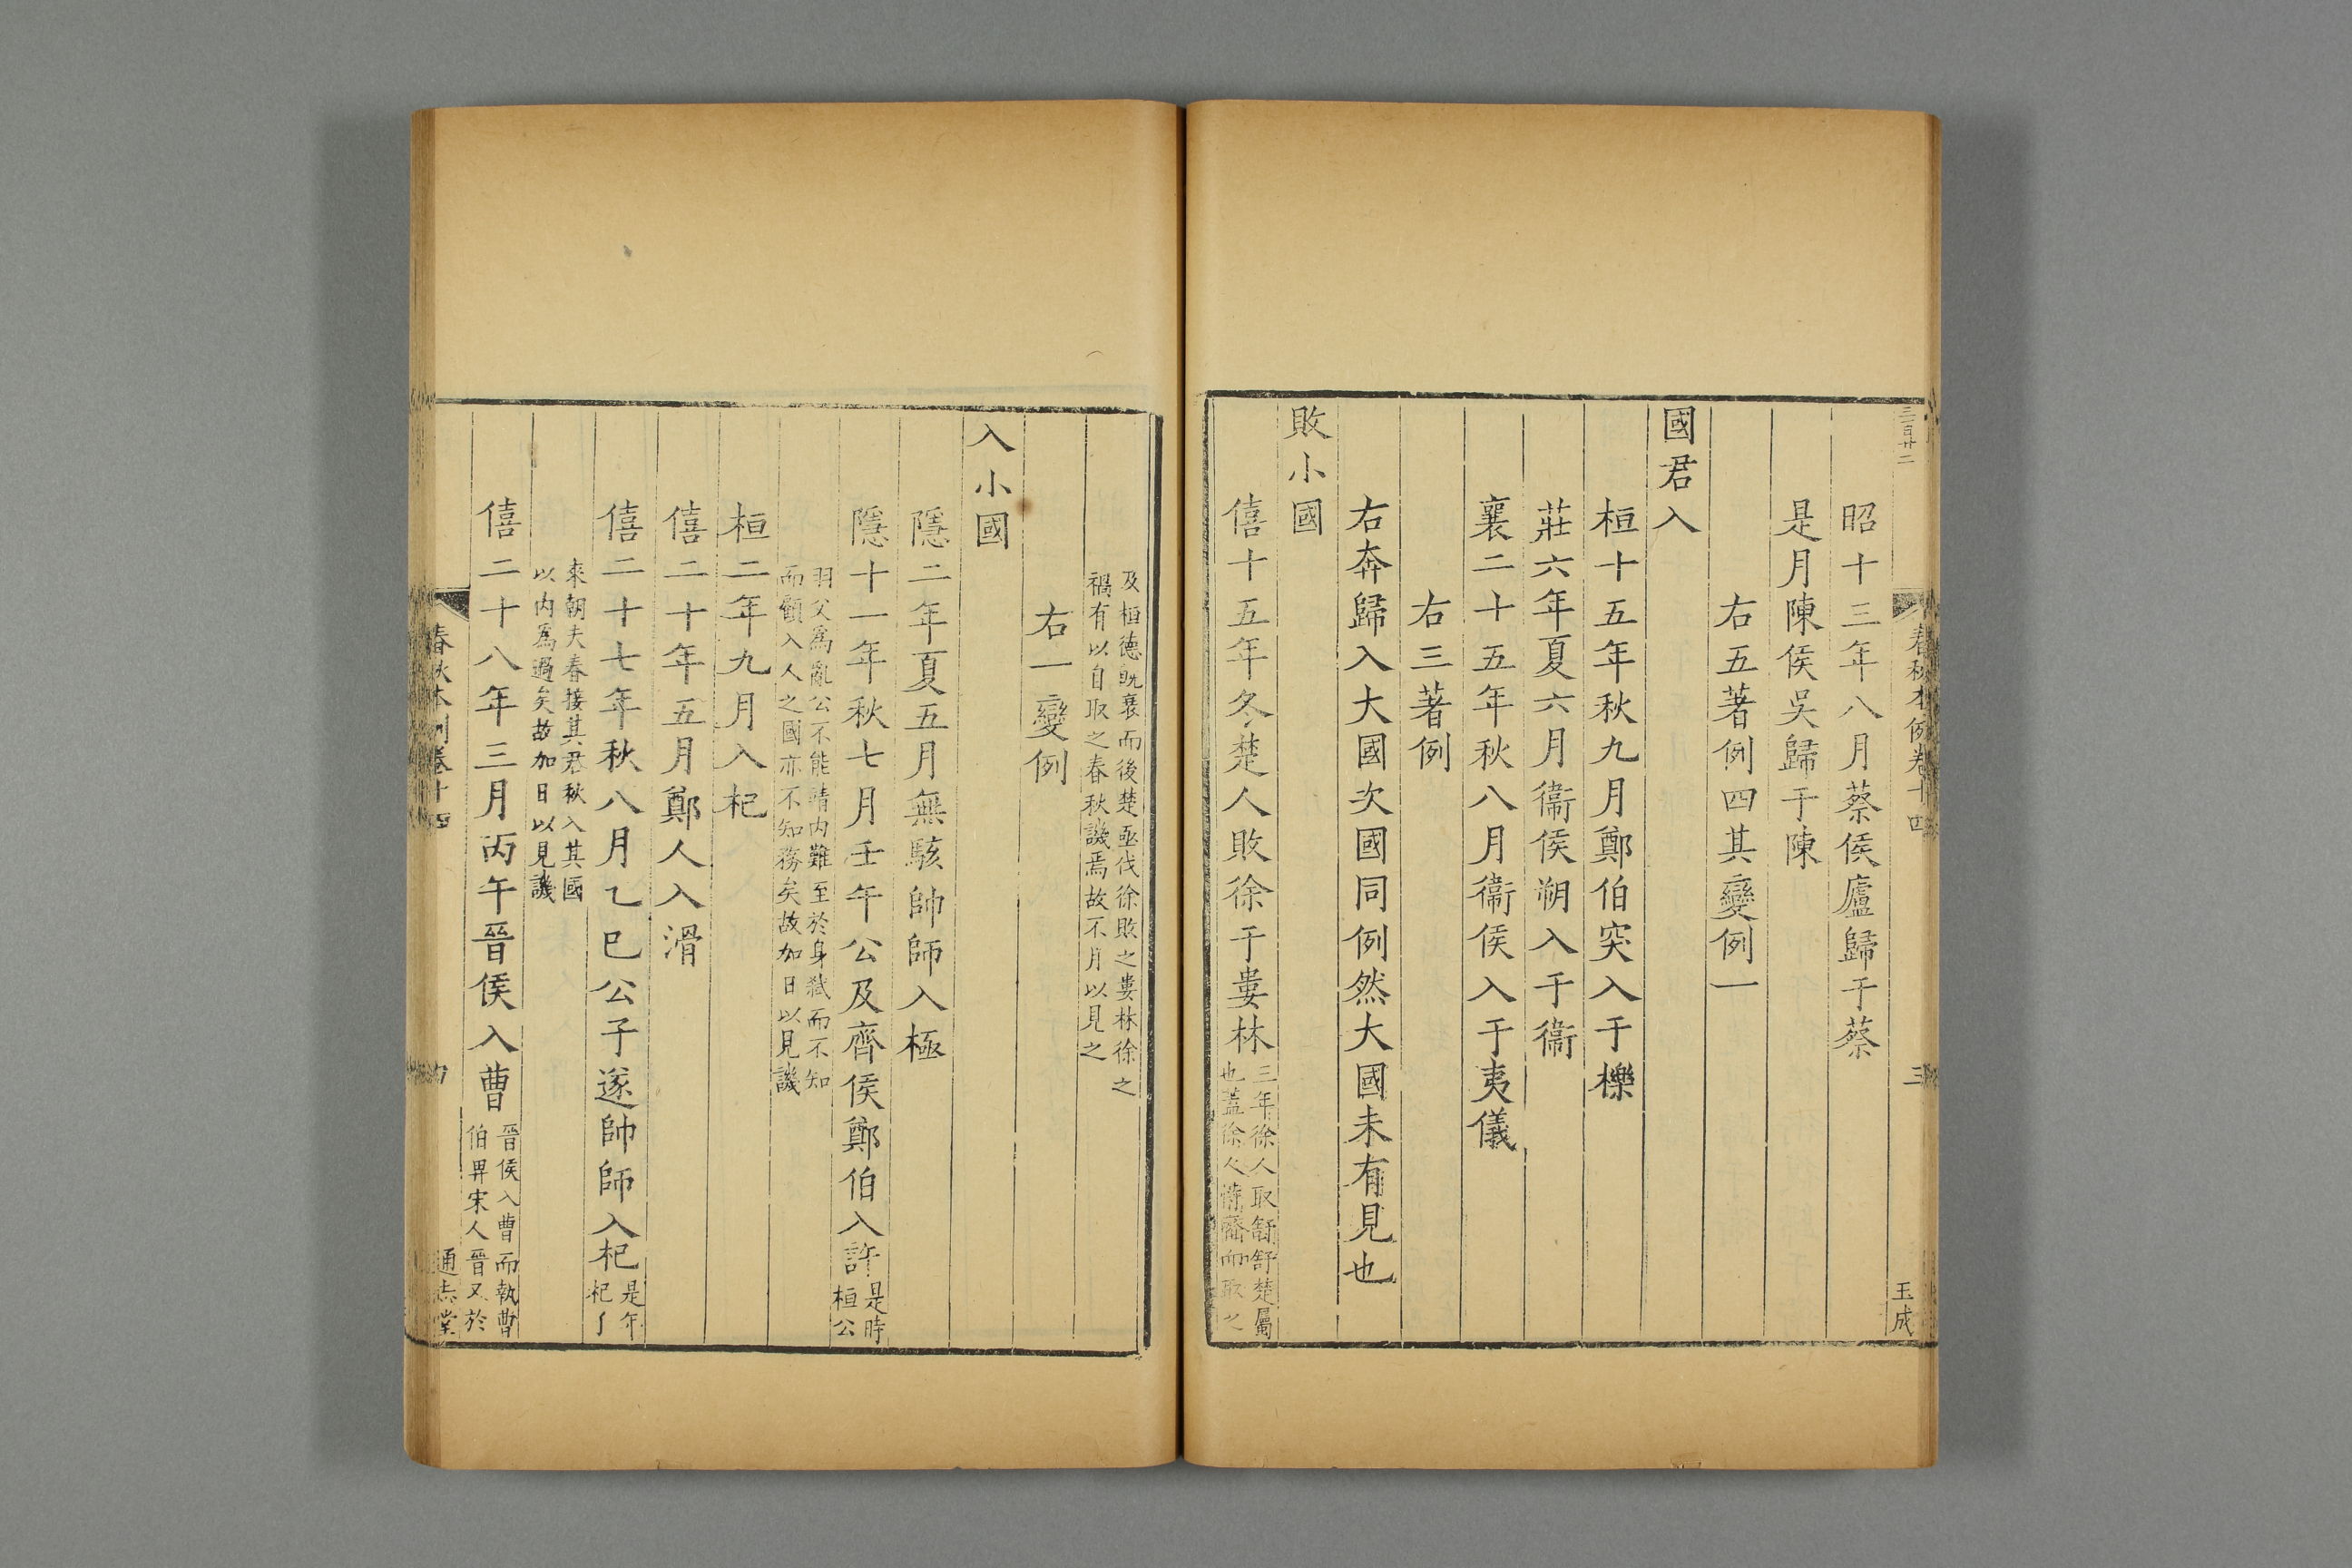 三百廿二
春秋本例卷十四
三
玉成
昭十三年八月蔡侯廬歸于蔡
是月陳侯吳歸于陳
右五著例四其變例一
國君入
桓十五年秋九月鄭伯突入于櫟
莊六年夏六月衞侯朔入于衞
襄二十五年秋八月衞侯入于夷儀
右三著例
右奔歸入大國次國同例然大國未有見也
敗小國
僖十五年冬楚人敗徐于婁林三年徐人取舒舒楚屬
也蓋徐人恃齊而取之
及桓德旣衰而後楚亟伐徐敗之婁林徐之
禍有以自取之春秋譏焉故不月以見之
右一變例
入小國
隱二年夏五月無駭帥師入極
隱十一年秋七月壬午公及齊侯鄭伯入許是時
桓公
羽父爲亂公不能靖內難至於身弑而不知
而顧入人之國亦不知務矣故加日以見譏
桓二年九月入杞
僖二十年五月鄭人入滑
僖二十七年秋八月乙巳公子遂帥師入杞是年
杞
來朝夫春接其君秋入其國
以內爲過矣故加日以見譏
僖二十八年三月丙午晉侯入曹晉侯入曹而執曹
伯畀宋人晉又於
春秋本例卷十四
通志堂